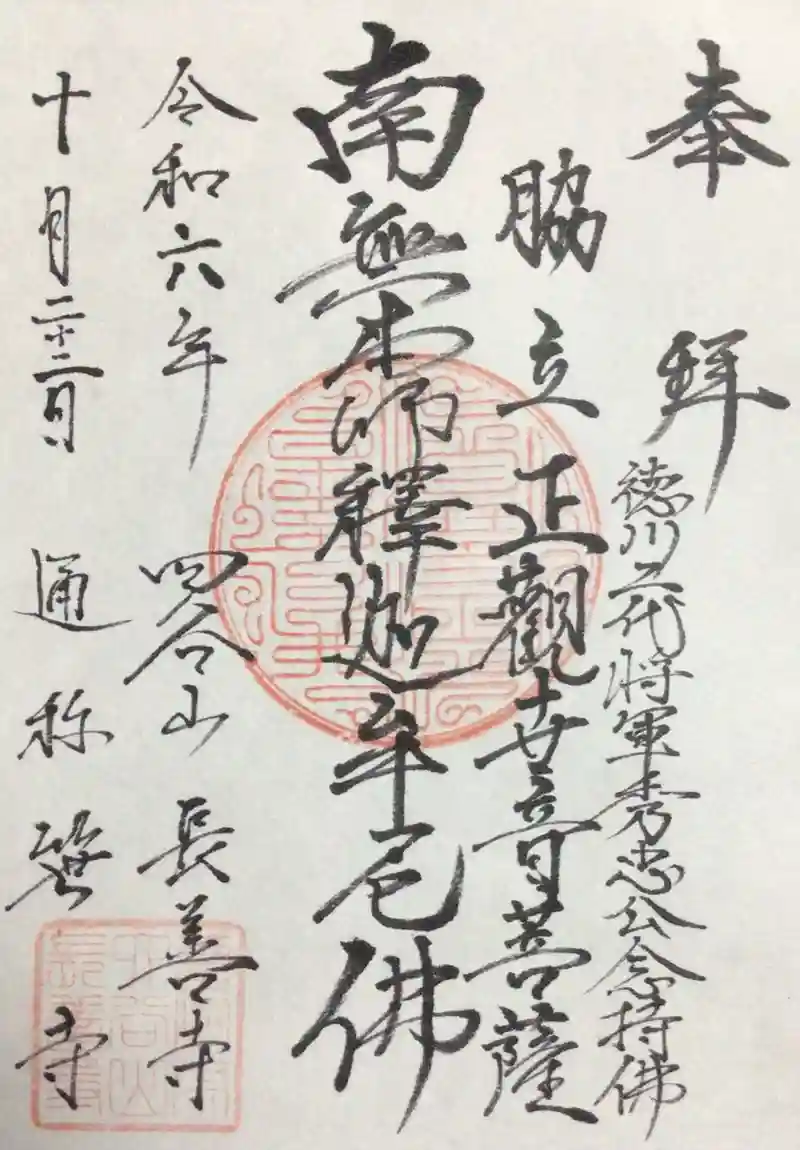 奉拜
徳川二代将軍秀忠公念持佛
脇立正觀世音菩薩
南無本師釋迦牟尼佛
令和六年 四谷山 長善寺
十月二十二日 通称笹寺